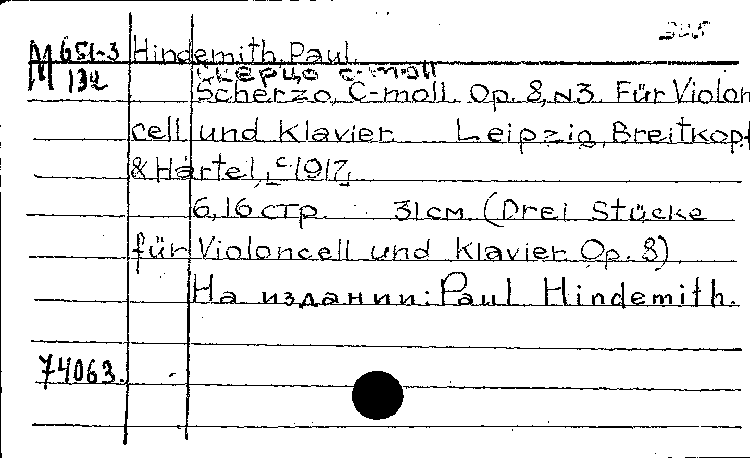 М 651-3 Hindemith, Paul.
М 132 Скерцо c-moll
Scherzo, C-moll. Op. 8, N3. Für Violon
cell und Klavier Leipzig, Breitkopf
& Härtel, [c 1917]
6, 16 стр. 31 см. (Drei Stücke
für Violoncell und Klavier. Op. 8)
На издании: Paul Hindemith.
74063.